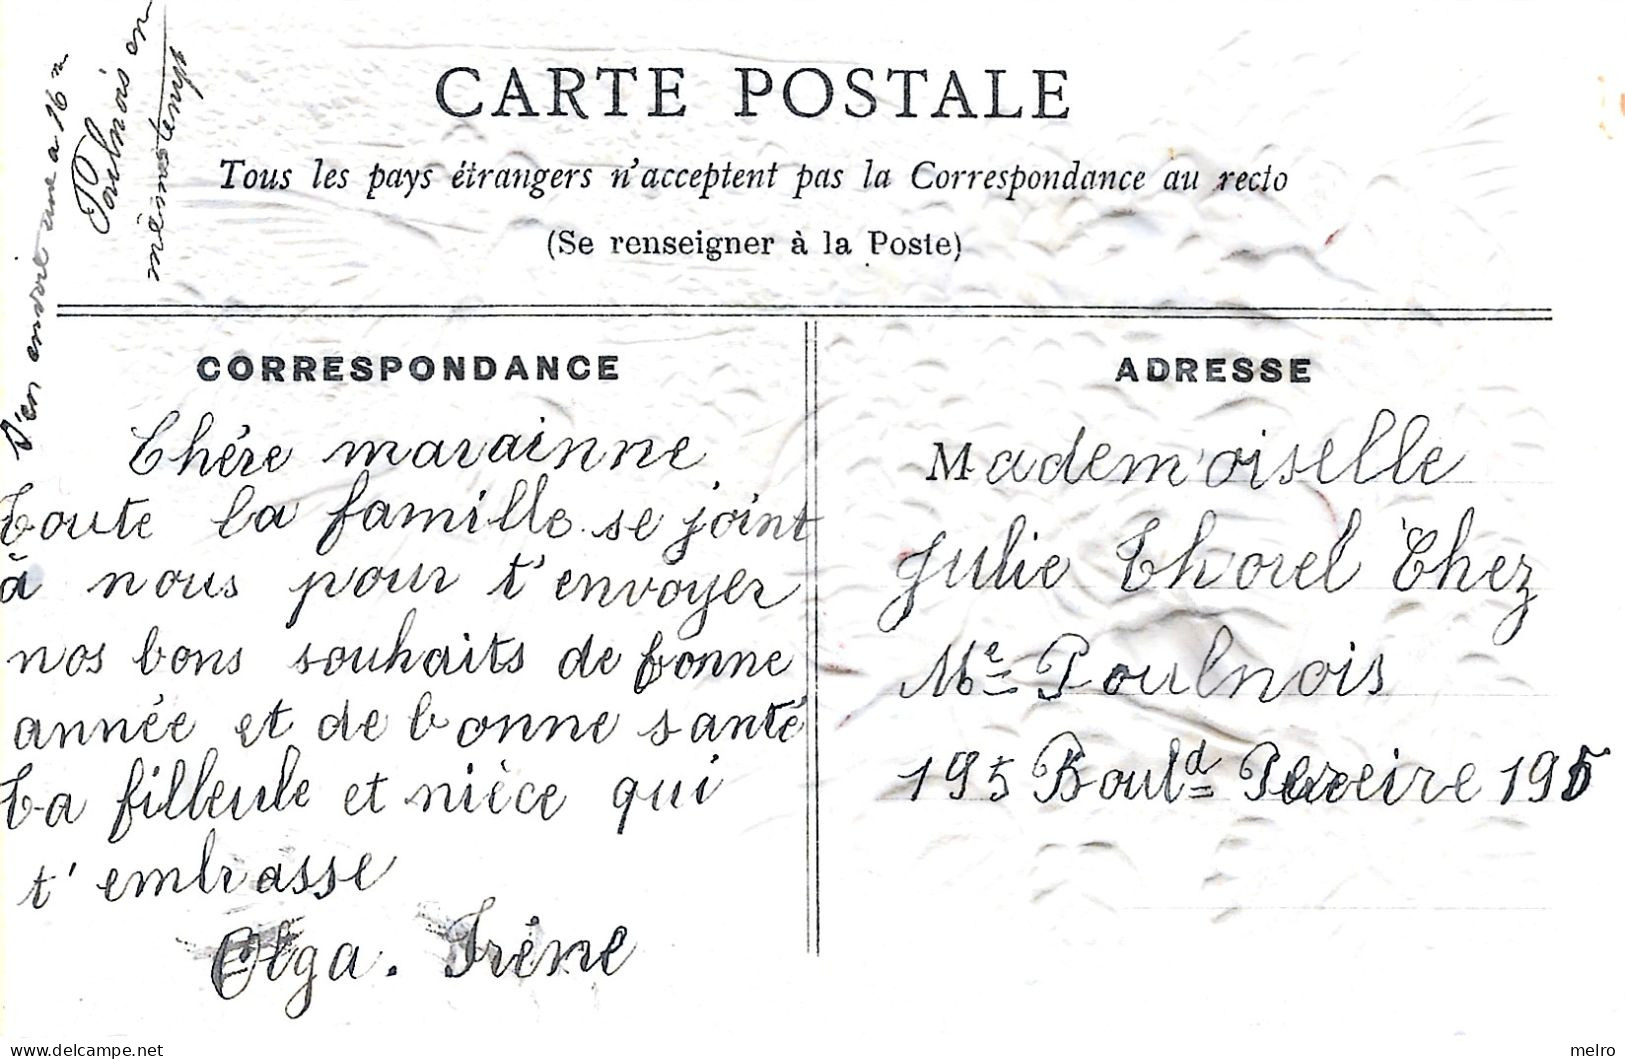 CARTE POSTALE
Tous les pays étrangers n'acceptent pas la Correspondance au recto
(Se renseigner à la Poste)
CORRESPONDANCE
Chére marainne
toute la famille se joint
à nous pour t'envoyer
nos bons souhaits de bonne
année et de bonne santé
ta filleule et nièce qui
t'embrasse
Olga. Irène
ADRESSE
Mademoiselle
Julie Thorel Chez
Me Poulnois
195 Bould Pereire 195
J'en envoie une a
Poulnois en
même temps
delcampe.net
melro